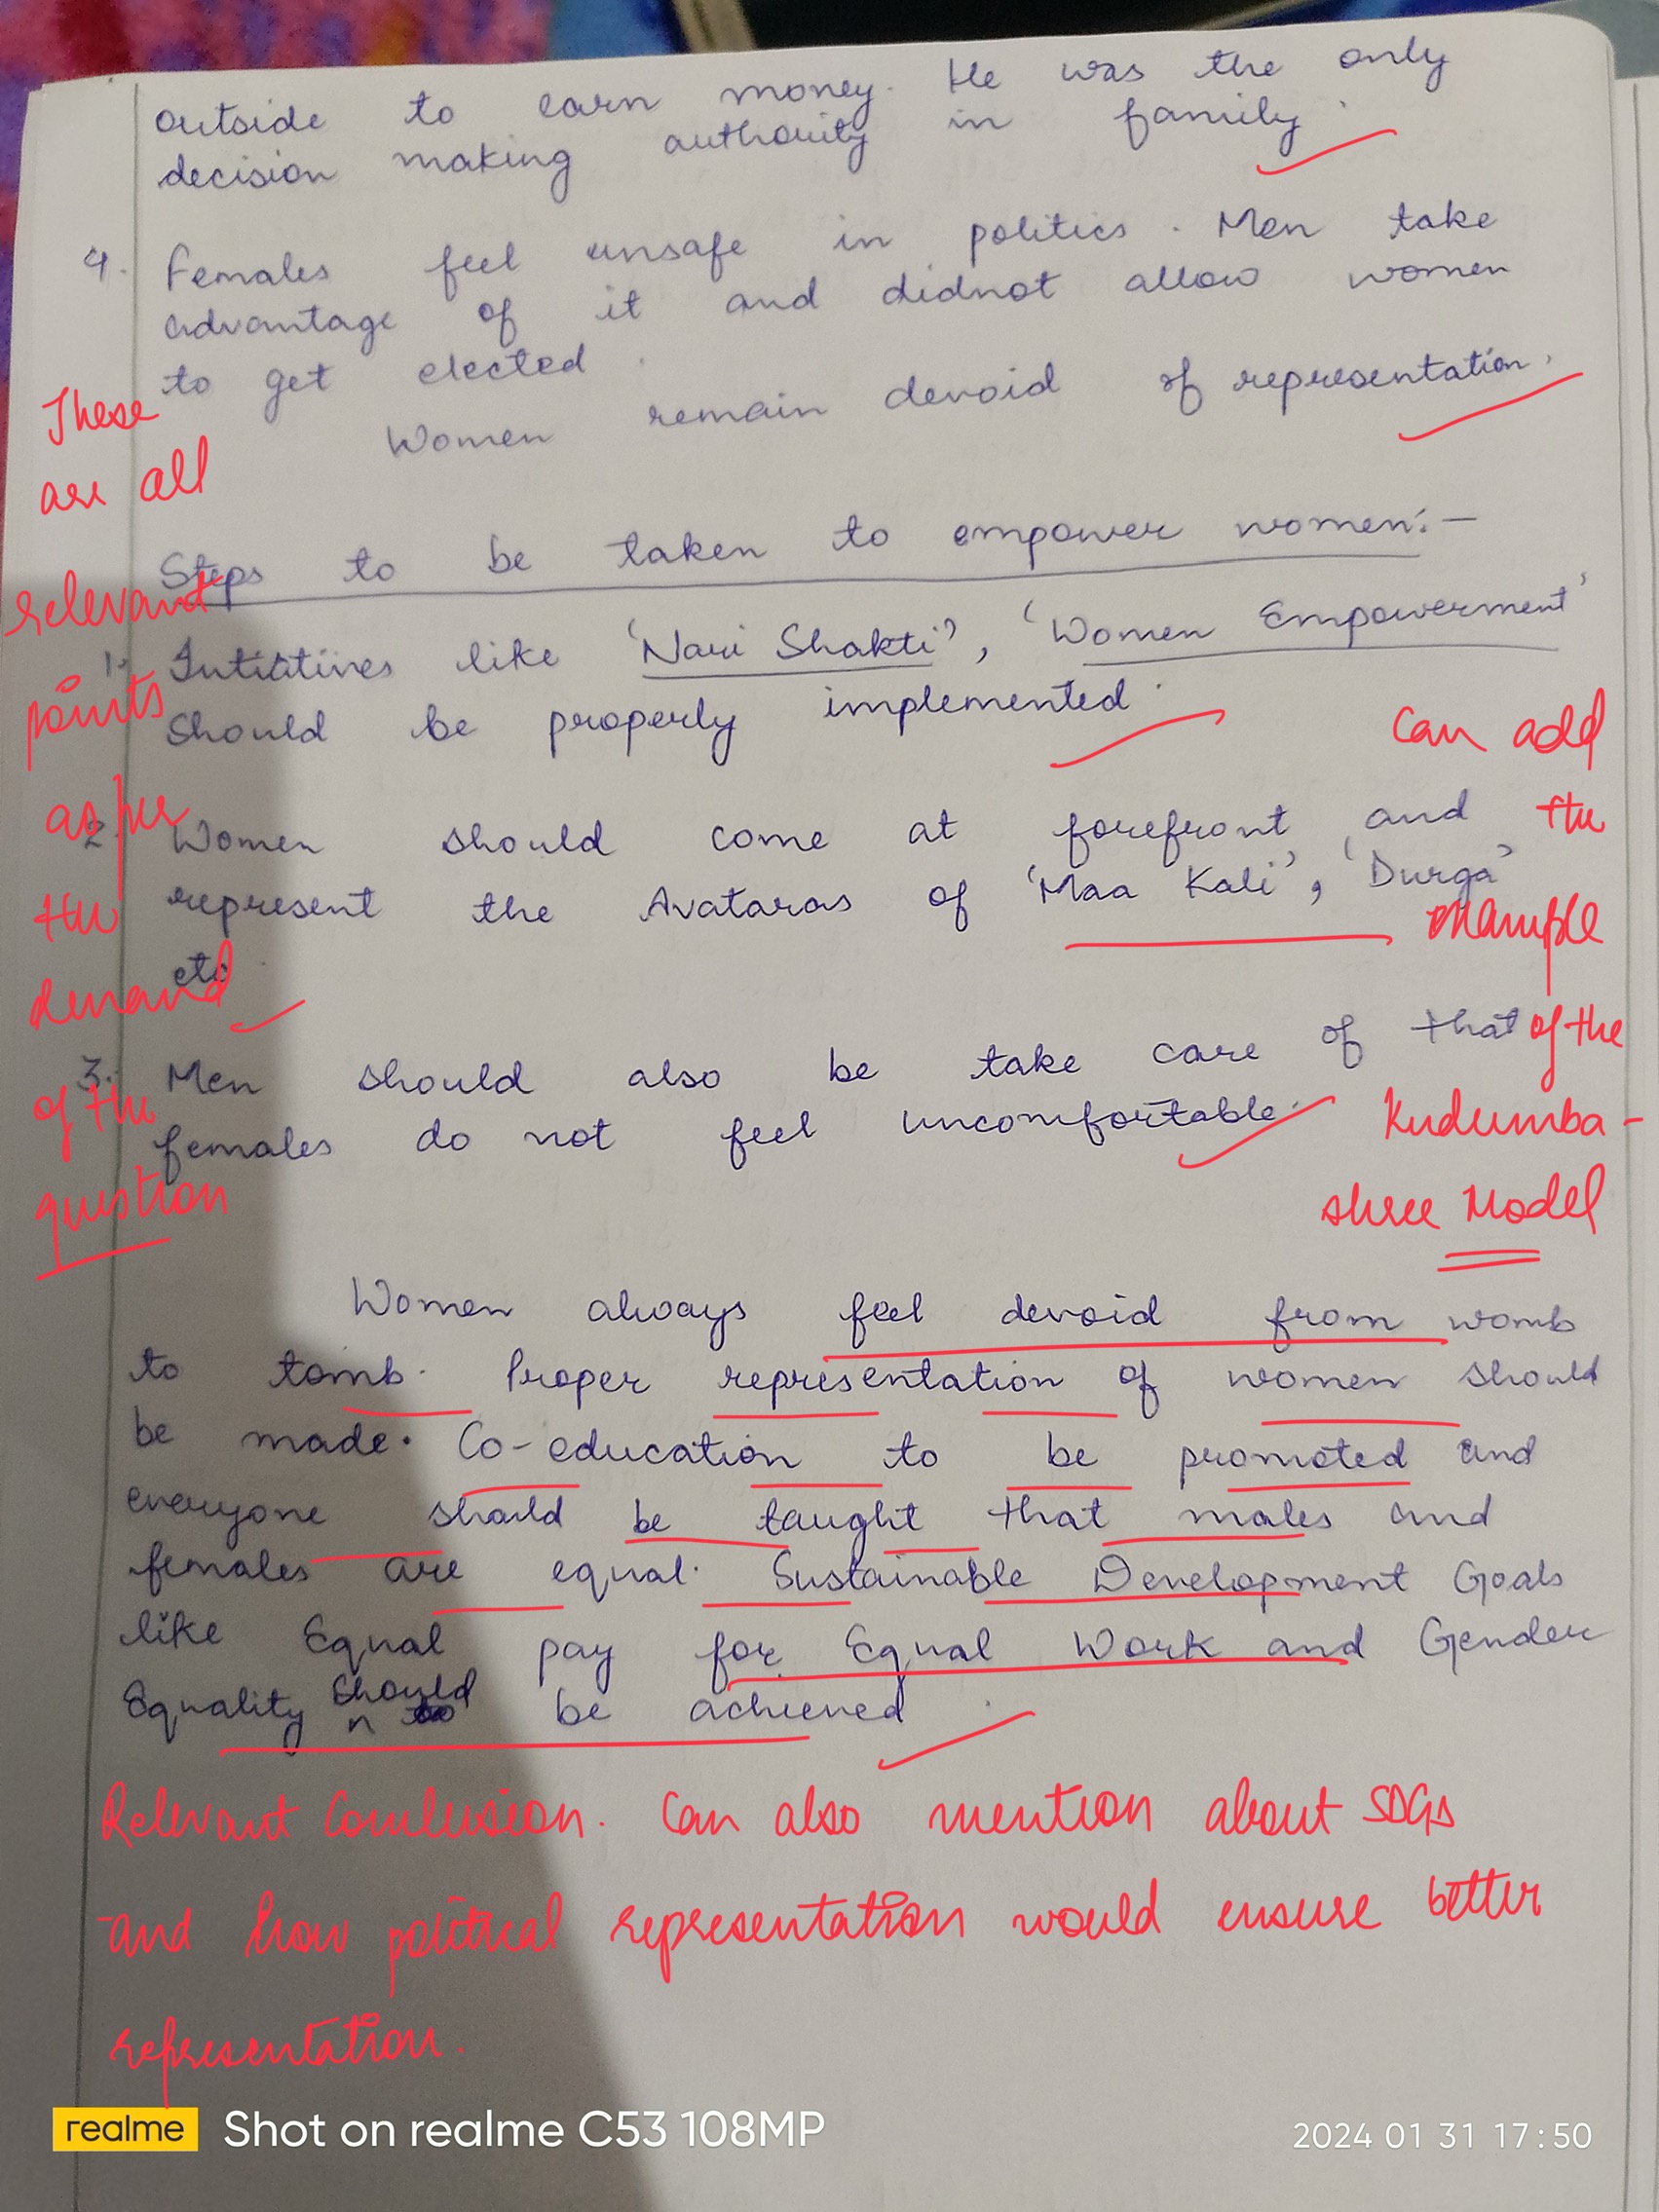 outside to earn money. He was the only
decision making authority in family.
4. Females feel unsafe in politics. Men take
advantage of it and didnot allow women
to get elected.
Women remain devoid of representation.
These
are all
relevant
points
as per
the
demand
of the
question
Steps to be taken to empower women:-
1. Intititives like 'Nari Shakti', 'Women Empowerment'
should be properly implemented.
2. Women should come at forefront and
represent the Avataras of 'Maa Kali', 'Durga'
etc.
3. Men should also be take care of that
females do not feel uncomfortable.
Can add
the
example
of the
Kudumba-
shree Model
Women always feel devoid from womb
to tomb. Proper representation of women should
be made. Co-education to be promoted and
everyone should be taught that males and
females are equal. Sustainable Development Goals
like Equal pay for Equal Work and Gender
Equality should be achieved.
Relevant Conclusion. Can also mention about SDGs
and how political representation would ensure better
representation.
realme Shot on realme C53 108MP
2024 01 31 17:50